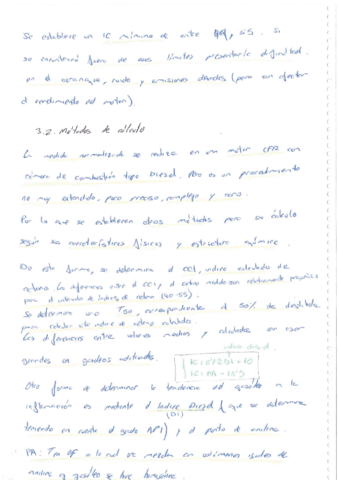 Se establece un IC mínimo de entre 49, 55. Si
se encontrará fuera de sus límites presentaría dificultad
en el arranque, ruido y emisiones elevadas (pero sin afectar
al rendimiento del motor).
3.2. Métodos de cálculo
La medida normalizada se realiza en un motor CFR con
cámara de combustión tipo Diesel. Pero es un procedimiento
no muy extendido, poco preciso, complejo y caro.
Por lo que se establecen otros métodos para su cálculo
según sus características físicas y estructura química.
De esta forma, se determina el CCI, índice calculado de
cetano. La diferencia entre el CCI, el cetano
para el intervalo de índices de cetano (40-55).
Se determina T50, correspondiente al 50% de destilado,
para calcular este índice de cetano calculado.
Las diferencias entre valores medios y calculados son
grandes en gasóleos aditivados.
Otra forma de determinar la tendencia del gasóleo a la
inflamación es mediante el Índice Diesel (que se determina
(DI)
teniendo en cuenta el grado API) y el punto de anilina.
PA: Tª ºF a la cual se mezclan en volúmenes iguales de
anilina y gasóleo se hace